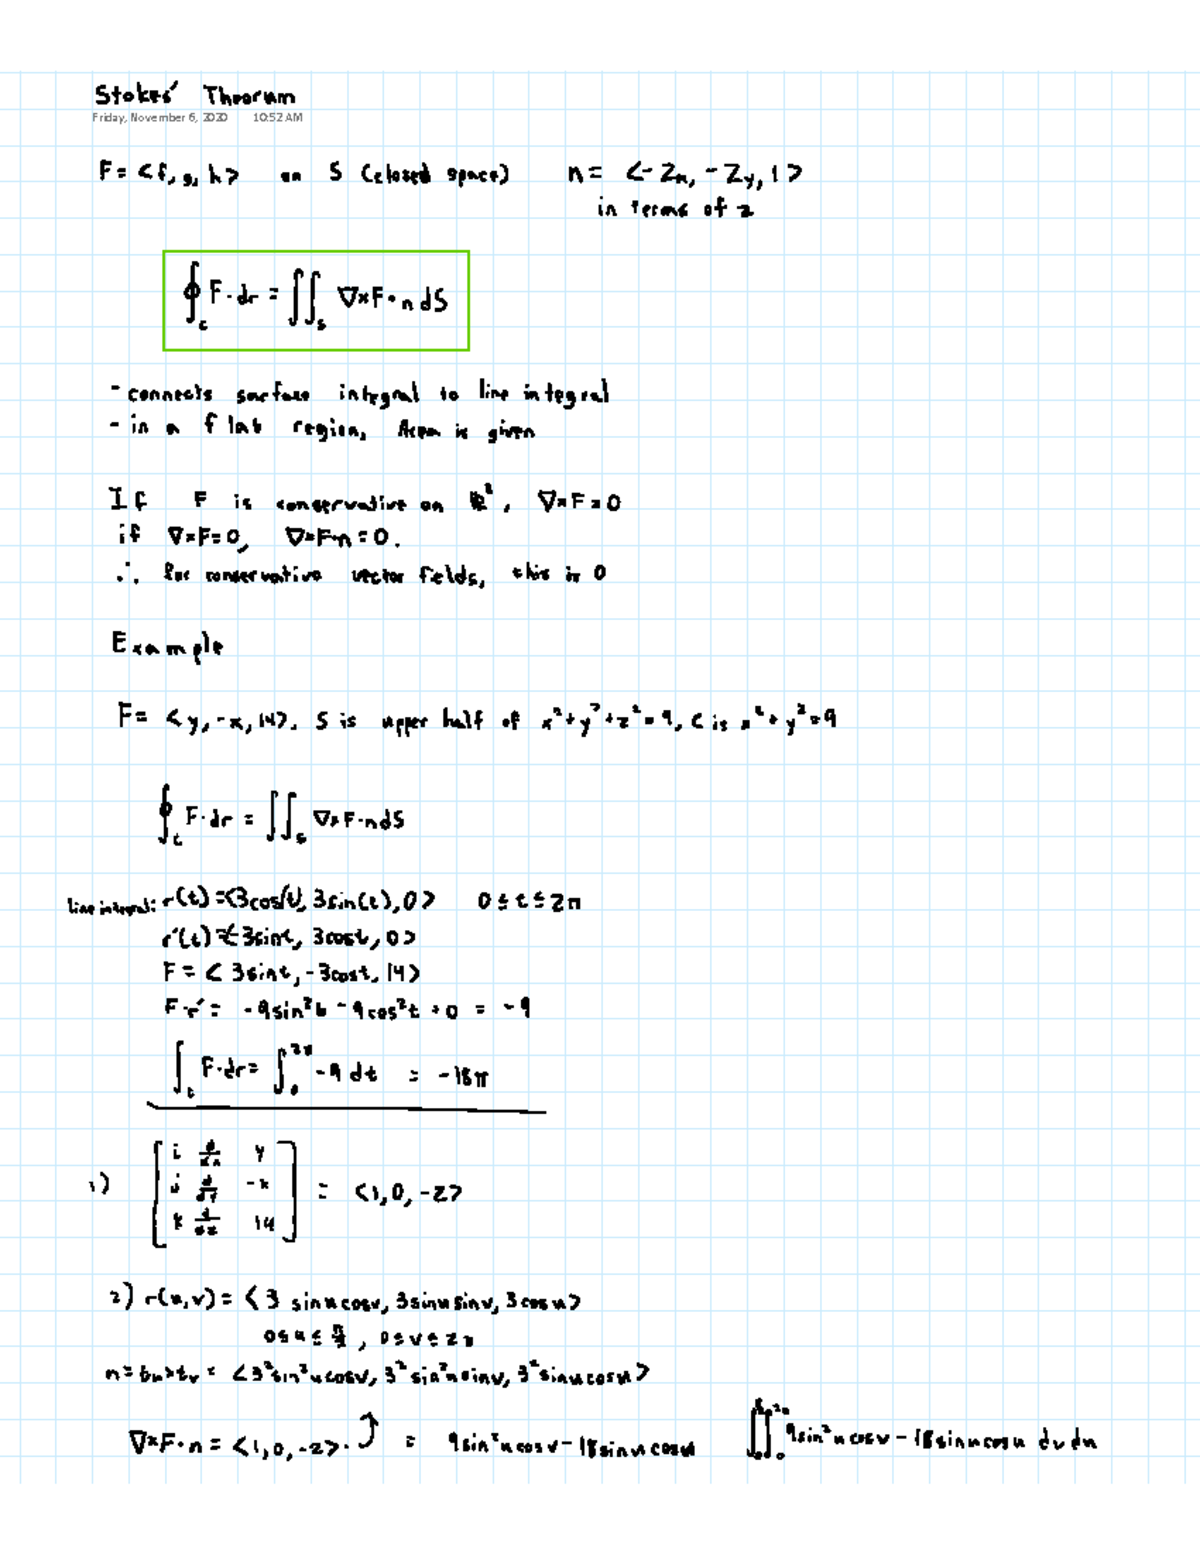 Stokes' Theorum
Friday, November 6, 2020 10:52 AM
F = <f, g, h> on S (closed space) n = <-Zx, -Zy, 1>
in terms of z
∮_C F·dr = ∬_S ∇×F·n dS
- connects surface integral to line integral
- in a flat region, is given
If F is conservative on ℝ², ∇×F = 0
if ∇×F = 0, ∇×F·n = 0.
∴ for conservative vector fields, this is 0
Example
F = <y, -x, 14>. S is upper half of x²+y²+z² = 9, C is x²+y² = 9
∮_C F·dr = ∬_S ∇×F·n dS
line integral: r(t) = <3cos(t), 3sin(t), 0> 0 ≤ t ≤ 2π
r'(t) = <-3sint, 3cost, 0>
F = <3sint, -3cost, 14>
F·r' = -9sin²t - 9cos²t + 0 = -9
∫_C F·dr = ∫_0^2π -9 dt = -18π
1) [i d/dx y
j d/dy -x
k d/dz 14] = <1, 0, -2>
2) r(u,v) = <3 sinucosv, 3sinusinv, 3cosu>
0 ≤ u ≤ π/2, 0 ≤ v ≤ 2π
n = tu×tv = <3²sin²ucosv, 3²sin²usinv, 3²sinucosu>
∇×F·n = <1, 0, -2>· ⤴ = 9sin²ucosv - 18sinucosu ∬_0^2π 9sin²ucosv - 18sinucosu dvdu